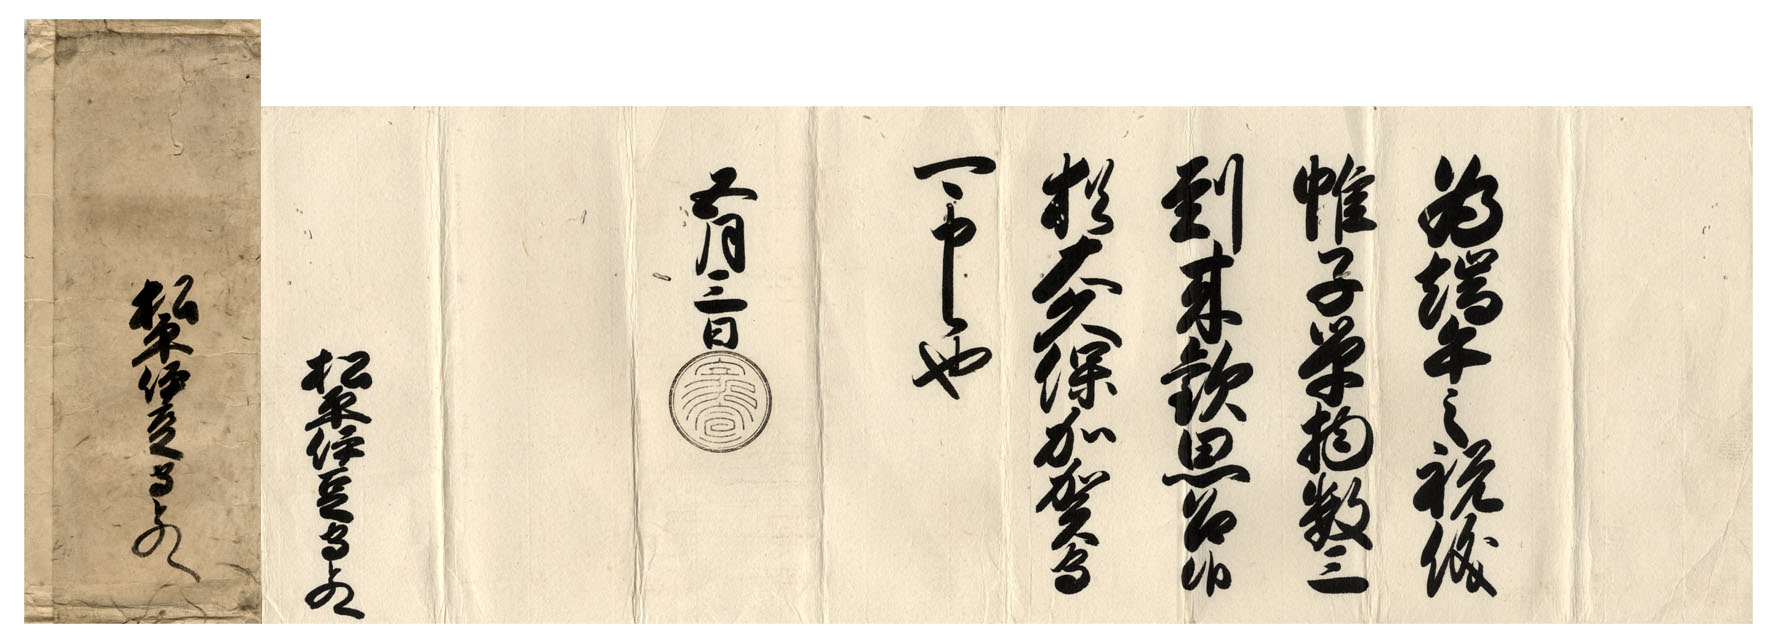 為端午之祝儀
帷子単物数三
到来歓思召候
猶大久保加賀守
可申候也
五月三日
松平伊豆守とのへ
松平伊豆守とのへ